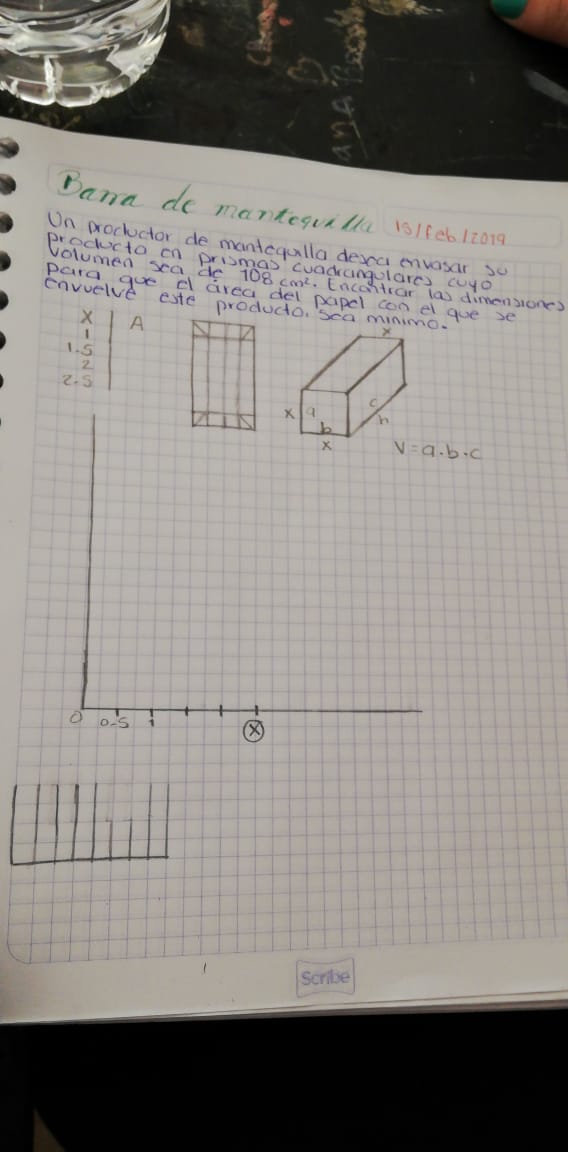 Barra de mantequilla 15/feb/2019
Un productor de mantequilla desea envasar su
producto en prismas cuadrangulares cuyo
volumen sea de 108 cm². Encontrar las dimensiones
para que el área del papel con el que se
envuelve este producto, sea minimo.
X A
1
1.5
2
2.5
x
x a c
b h
x
V=a.b.c
0 0.5 1 X
Scribe